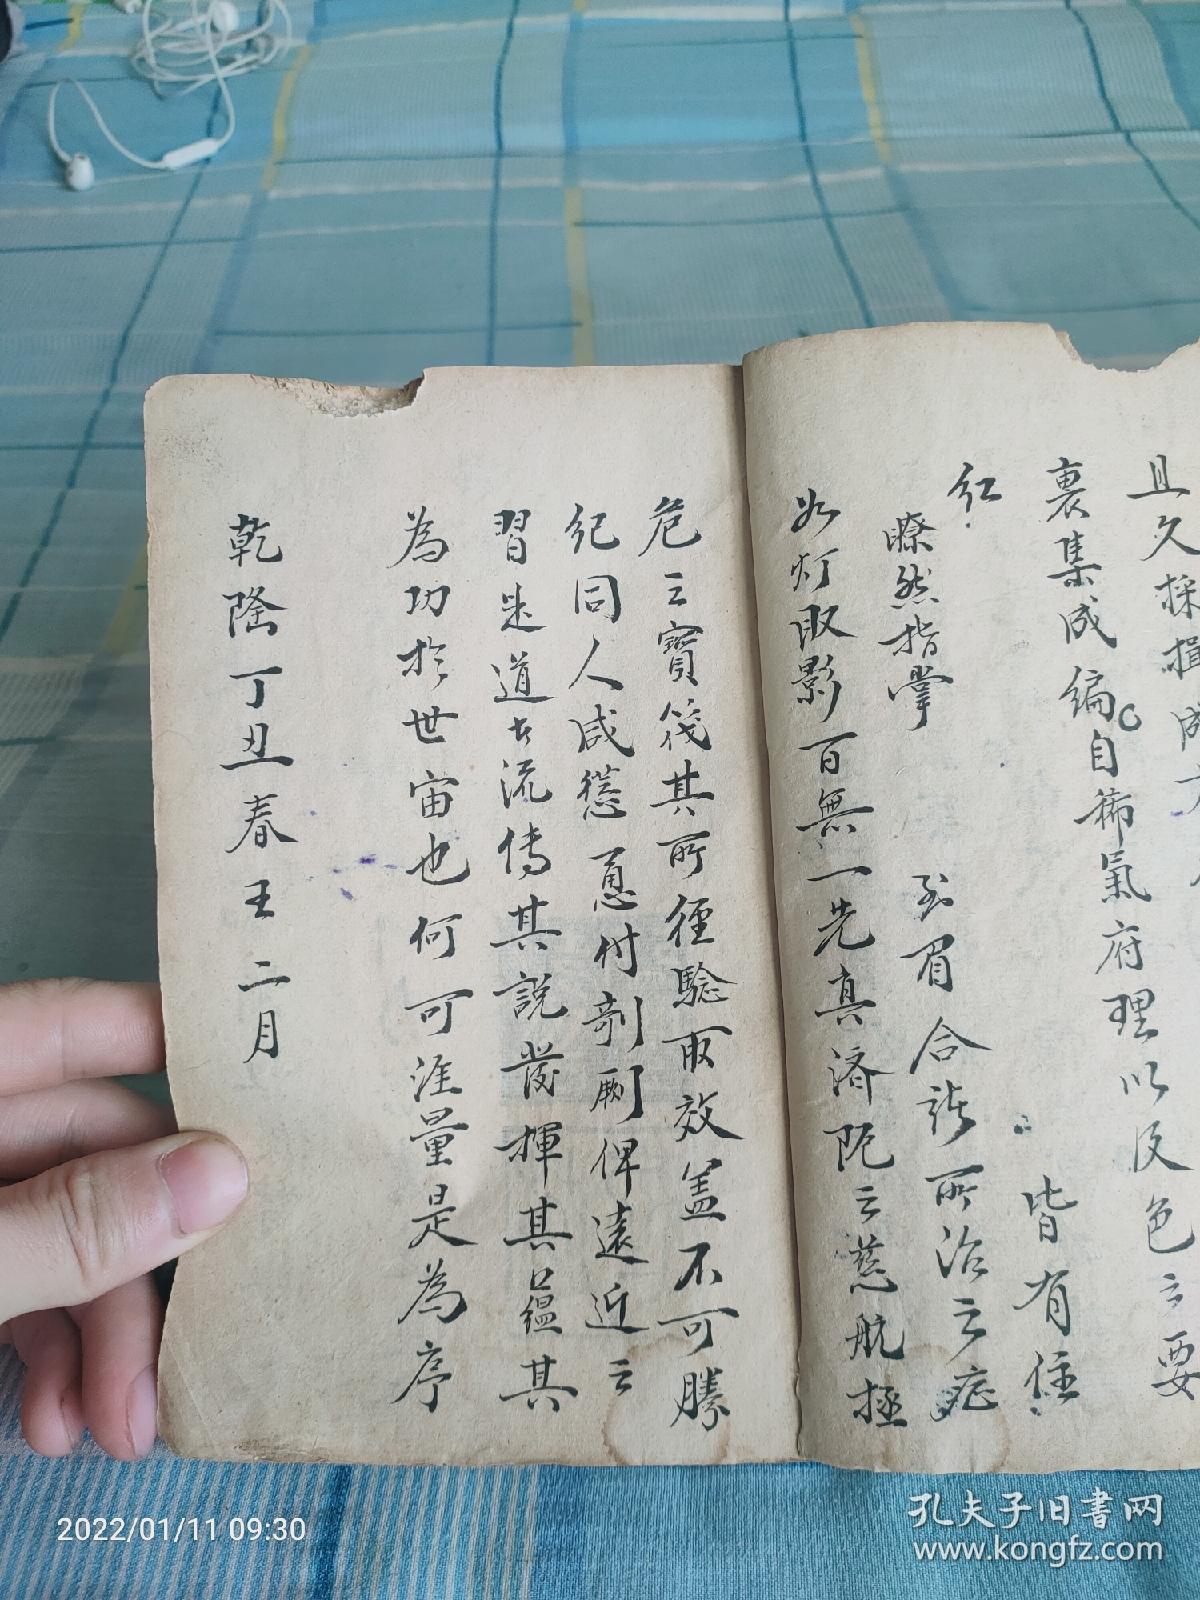 且久採揖成
裏集成編自
臟氣府理以及色之要
紅
瞭然指掌
皆有
眉合
所治之症
如灯取影百無一先真濟阨之慈航拯
危之寶筏其所徑驗取效盖不可勝
紀同人咸慫恿付剞劂俾遠近之
習是道者流傳其說發揮其蘊其
為功於世宙也何可涯量是為序
乾隆丁丑春王二月
2022/01/11 09:30
孔夫子旧書网
www.kongfz.com